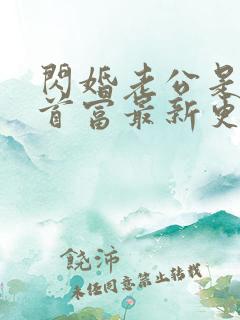 閃婚老公是
首富最新更
饒沛
未经同意禁止转载